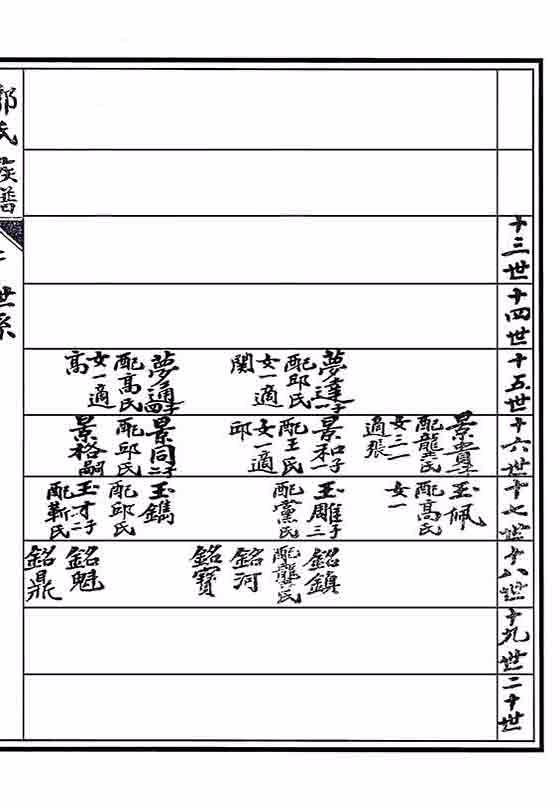 十三世
十四世
十五世
十六世
十七世
十八世
十九世
二十世
夢達一子
配邱氏
女一適
関
夢通四子
配高氏
女一適
高
配龔氏
女三一
適張
景和一子
配王氏
女一適
邱
景同二子
配邱氏
景格嗣
玉佩
配高氏
女一
玉雕三子
配黨氏
玉鐫
配邱氏
玉才二子
配靳氏
銘鎮
配龔氏
銘河
銘寶
銘魁
銘鼎
郭氏族譜
世系